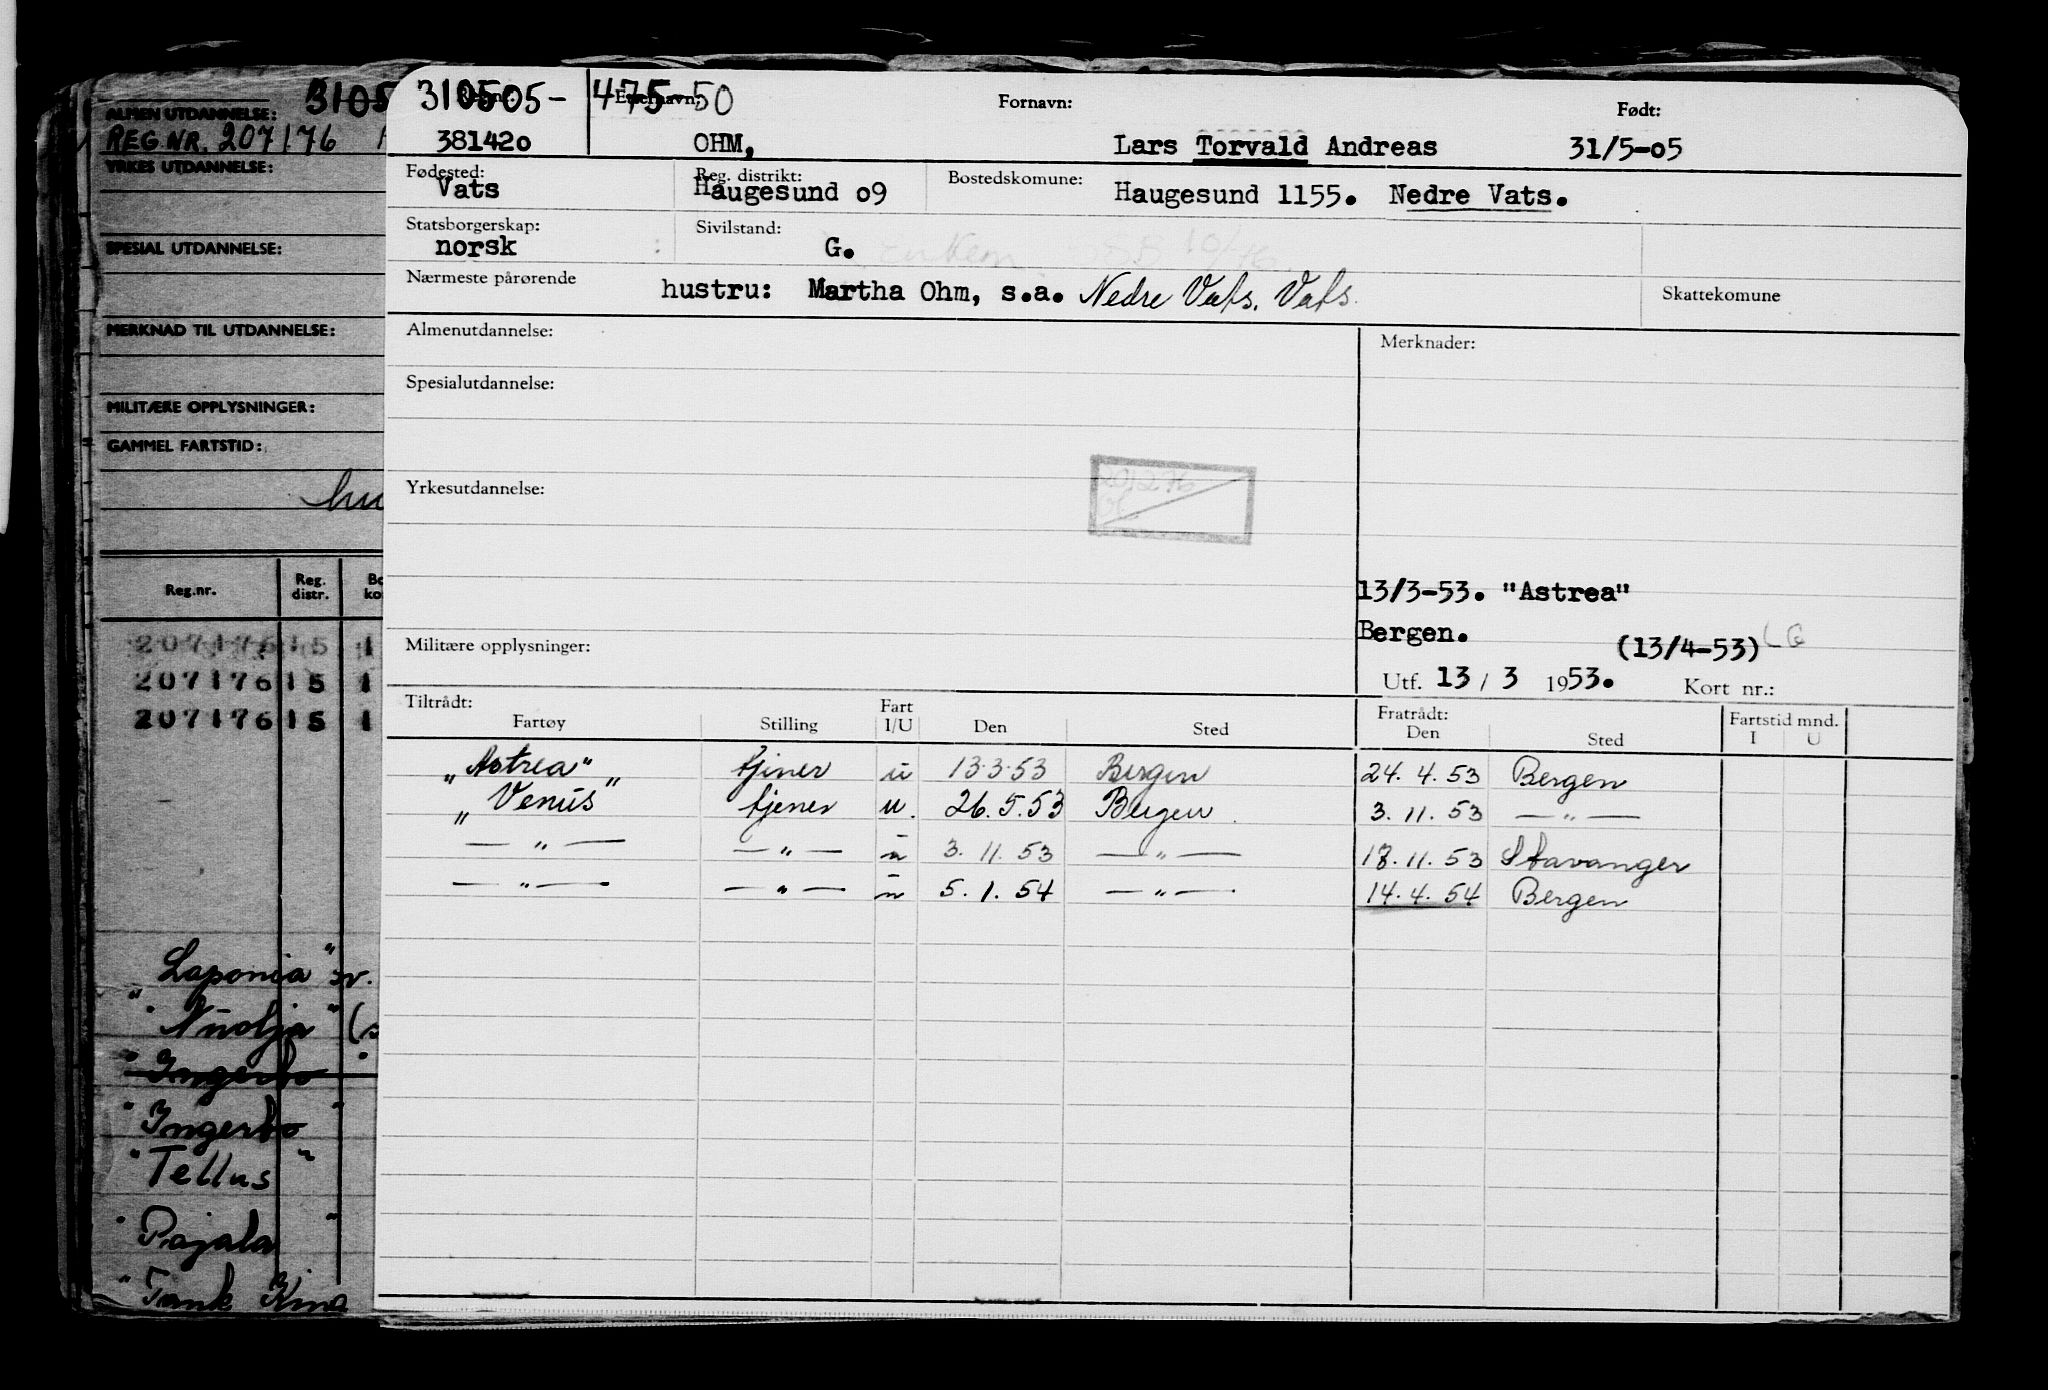 3105
ALMEN UTDANNELSE:
REG.NR. 207176
YRKES UTDANNELSE:
SPESIAL UTDANNELSE:
MERKNAD TIL UTDANNELSE:
MILITÆRE OPPLYSNINGER:
GAMMEL FARTSTID:
hu
Reg.nr. Reg. distr. Bo ko
207176 15 1
207176 15 1
207176 15 1
"Laponia" sv.
"Nuolja" (s
"Ingerto"
"Ingerto"
"Tellus"
"Pajala"
"Tank King
310505- 475-50
Fornavn: Født:
381420 OHM, Lars Torvald Andreas 31/5-05
Fødested: Reg. distrikt: Bostedskomune:
Vats Haugesund 09 Haugesund 1155. Nedre Vats.
Statsborgerskap: Sivilstand:
norsk G.
Nærmeste pårørende hustru: Martha Ohm, s.a. Nedre Vats. Vats. Skattekomune
Almenutdannelse: Merknader:
Spesialutdannelse:
Yrkesutdannelse:
13/3-53. "Astrea"
Bergen.
Militære opplysninger: (13/4-53)
Utf. 13 / 3 1953. Kort nr.:
Tiltrådt: Fratrådt: Fartstid mnd.
Fartøy Stilling Fart I/U Den Sted Den Sted I U
"Astrea" tjener u 13.3.53 Bergen 24.4.53 Bergen
"Venus" tjener u. 26.5.53 Bergen 3.11.53 — " —
— " — — " — u 3.11.53 — " — 18.11.53 Stavanger
— " — — " — u 5.1.54 — " — 14.4.54 Bergen